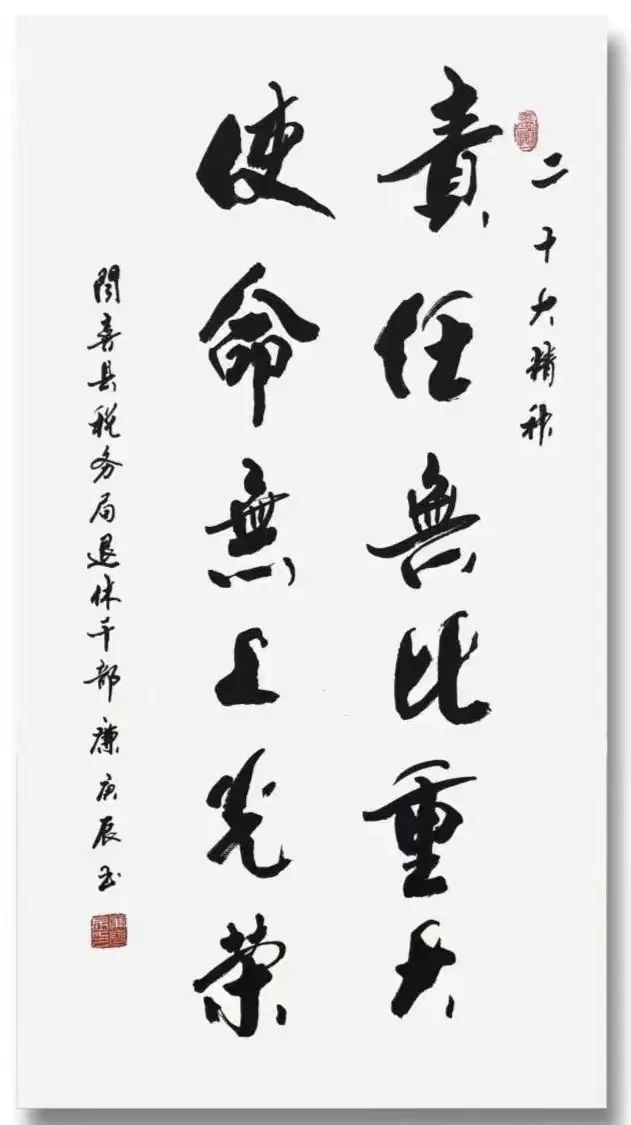 二十大精神
責任無比重大
使命無上光荣
闻喜县税务局退休干部廉庚辰书